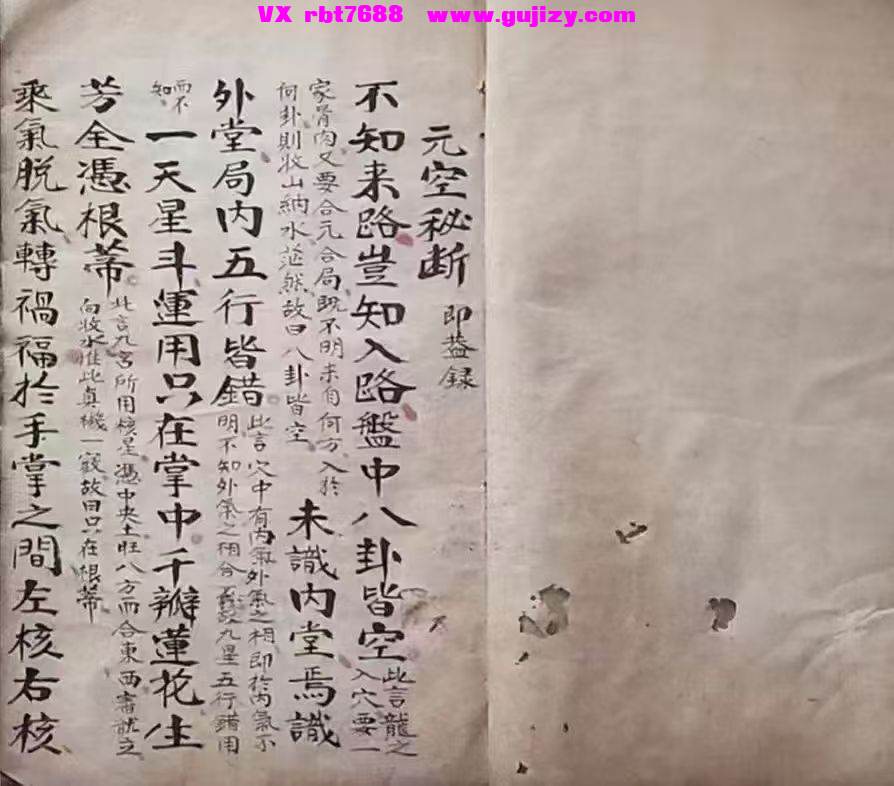 VX rbt7688 www.gujizy.com
元空秘断 即葢録
不知来路豈知入路盤中八卦皆空 此言龍之入穴要一
家骨肉又要合元合局既不明来自何方入於
何卦則收山納水茫然故曰八卦皆空 未識内堂焉識
外堂局内五行皆錯 此言穴中有内氣外氣之相即於内氣不
明不知外氣之相合 故九星五行錯用
而不知 一天星斗運用只在掌中千瓣蓮花生
芳全憑根蒂 此言九宮所用核星憑中央土旺八方而合東西審龍之
向收水准此真機一竅故曰只在根蒂
乘氣脱氣轉禍福於手掌之間左核右核